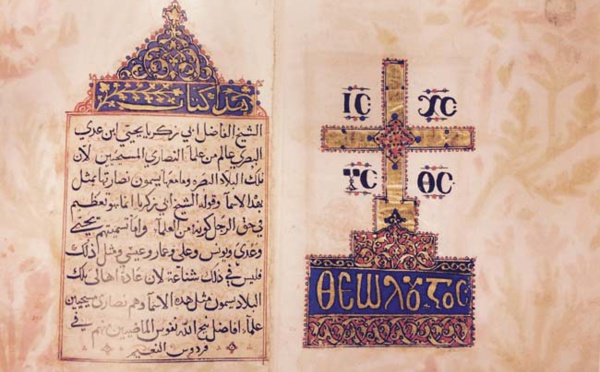 هذا كتاب
الشيخ الفاضل ابي زكريا يحيى ابن عدي
البصري عالم من علماء النصارى المسيحيين لان
تلك البلاد البصره وما معها يسمون نصارتها بمثل
هذا الاسماء وقوله الشيخ ابي زكريا هو تعظيم
في حق الرجل كونه من العلماء واما تسميتهم يحيى
وعدي ويونس وعلي وعمار وعيسى ومثل ذلك
فليس في ذلك شناعة لان عادة اهالي تلك
البلاد يسمون مثل هذه الاسماء وهم نصارى مسيحيين
علماء افاضل نيح الله نفوس الماضيين منهم في
فردوس النعيم
ⲒⲤ ⲬⲤ
ⲨⲤ ⲐⲤ
ⲐⲈⲰⲖⲞⲄⲞⲤ